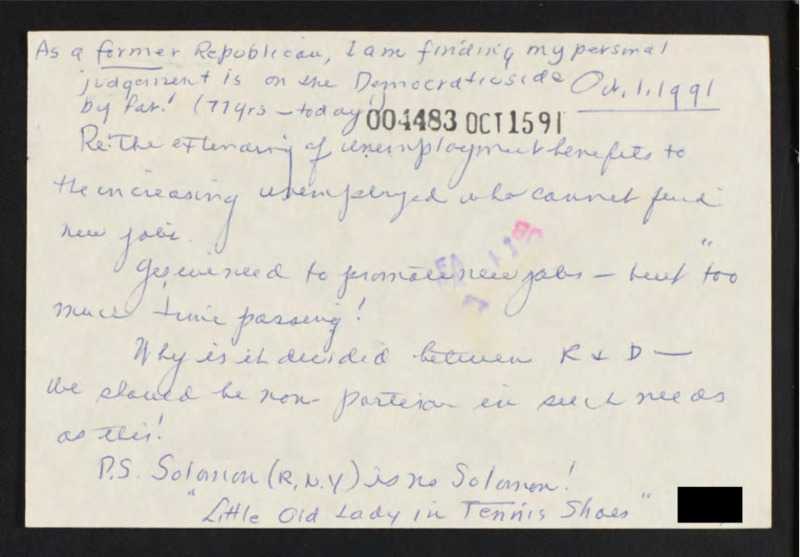 As a former Republican, I am finding my personal
judgement is on the Democratic side Oct. 1, 1991
by far! (77 yrs – today)
004483 OCT1591
Re: The extending of unemployment benefits to
the increasing unemployed who cannot find
new jobs.
Yes, we need to promote new jobs – but "too
much time passing!
Why is it decided between R & D —
We should be non-partisan in such needs
as this!
P.S. Solomon (R, N.Y) is no Solomon!
"Little Old Lady in Tennis Shoes"